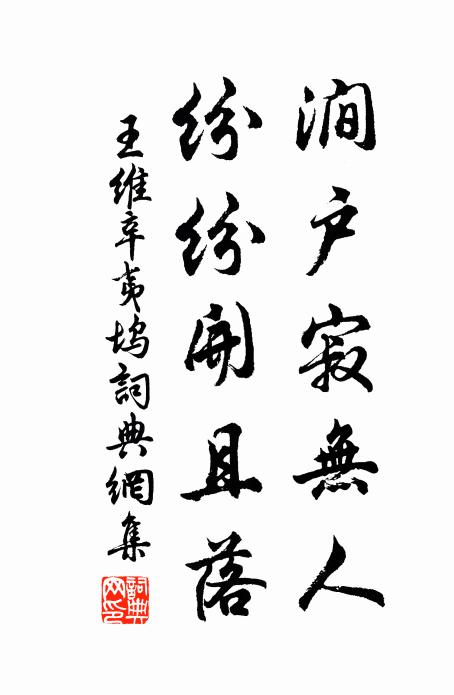 澗户寂無人
紛紛開且落
王維辛夷塢詞典網集
詞典網印